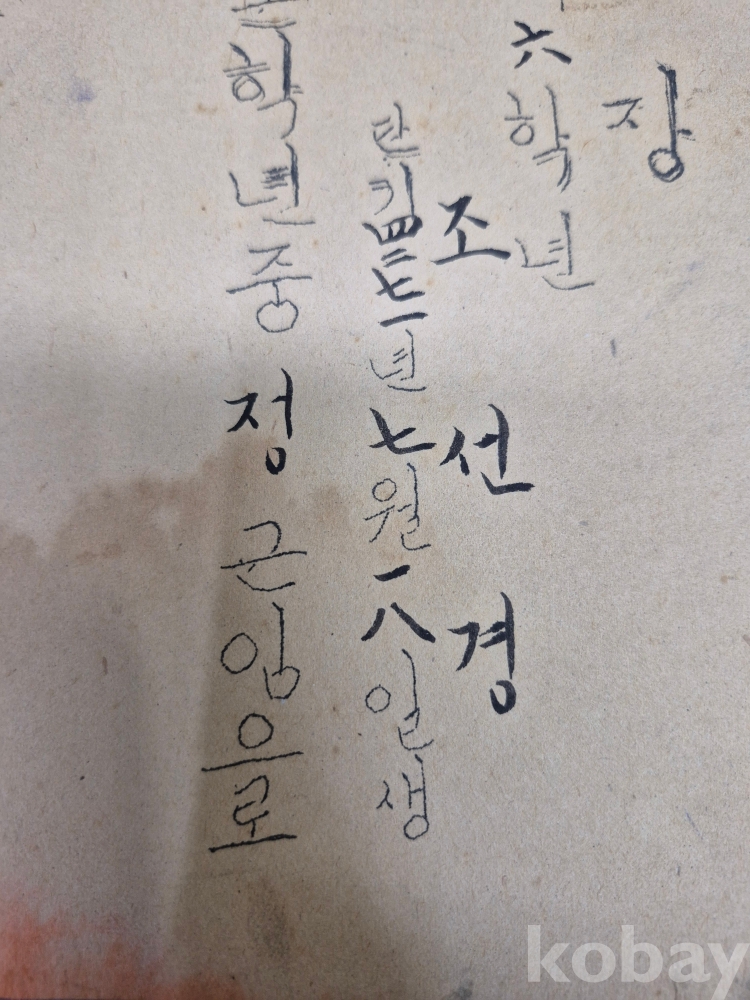 장
六학년
조선경
단기四二七一년七월一八일生
학년중정근임으로
kobay